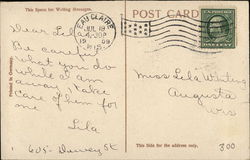 This Space for Writing Messages.
POST CARD
EAU CLAIRE
JUL 19
1909
WIS.
Dear Lela
Be careful
what you do
while I am
away. Take
care of them for
me
Lila
605 - Dewey St
Miss Lela Whiting
Augusta
Wis
This side for the address only.
Printed in Germany.
300